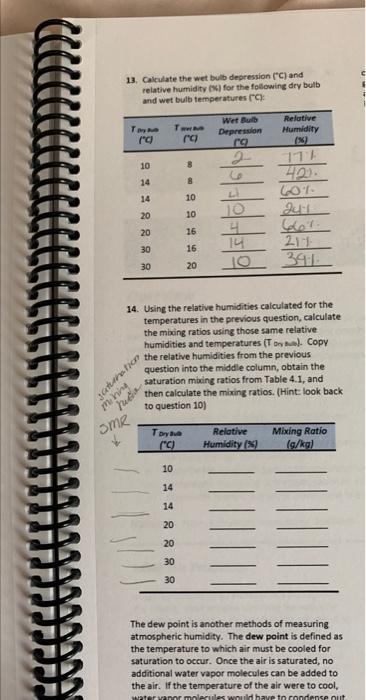 13. Calculate the wet bulb depression (°C) and
relative humidity (%) for the following dry bulb
and wet bulb temperatures (°C):
T Dry Bulb (°C) T Wet Bulb (°C) Wet Bulb Depression (°C) Relative Humidity (%)
10 8 2 77%
14 8 6 42%
14 10 4 60%
20 10 10 24%
20 16 4 66%
30 16 14 21%
30 20 10 39%
14. Using the relative humidities calculated for the
temperatures in the previous question, calculate
the mixing ratios using those same relative
humidities and temperatures (T Dry Bulb). Copy
the relative humidities from the previous
question into the middle column, obtain the
saturation mixing ratios from Table 4.1, and
then calculate the mixing ratios. (Hint: look back
to question 10)
saturation
mixing
ratio
SMR
T Dry Bulb (°C) Relative Humidity (%) Mixing Ratio (g/kg)
10
14
14
20
20
30
30
The dew point is another methods of measuring
atmospheric humidity. The dew point is defined as
the temperature to which air must be cooled for
saturation to occur. Once the air is saturated, no
additional water vapor molecules can be added to
the air. If the temperature of the air were to cool,
water vapor molecules would have to condense out